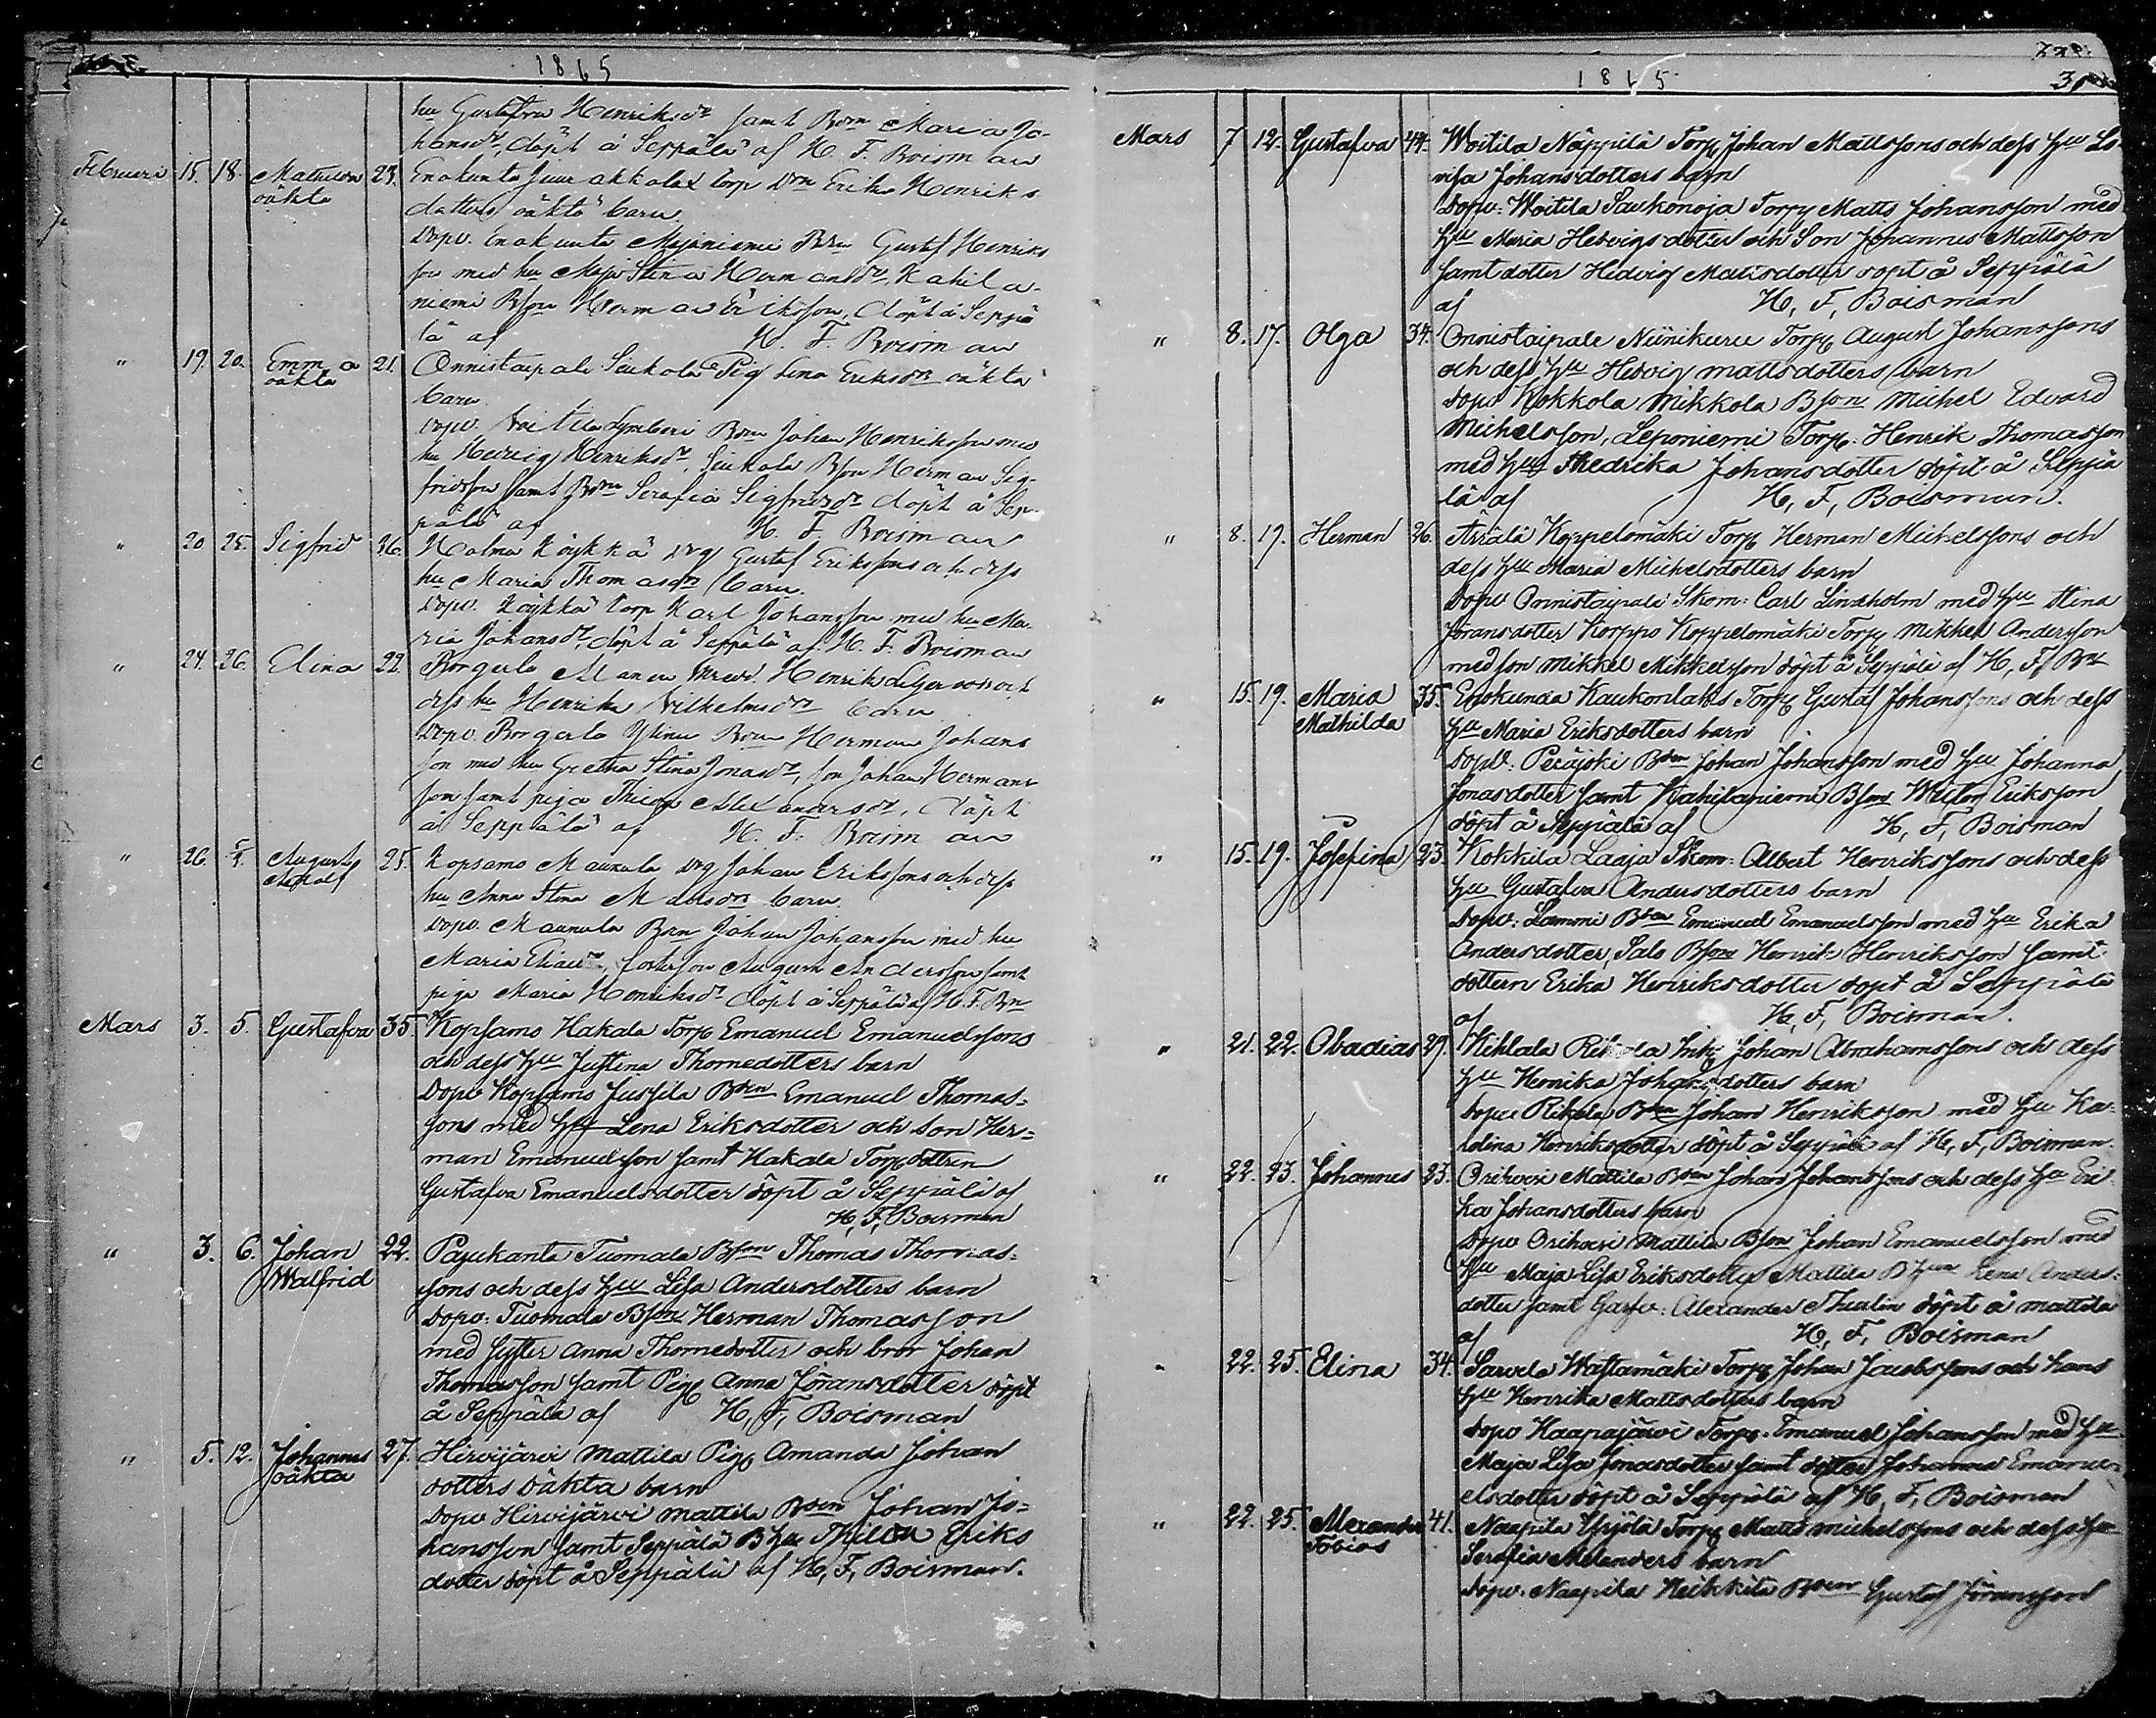 1865
hu Gustafva Henriksdr samt Bdrn Maria Jo-
hansdr, döpt å Seppälä af H. F. Boisman
Februari 15. 18. oäkta 23. Enokunta torp Drn Erika Henriks
dotters oäkta barn
Dopv. Enokunta Majaniemi Bdrn Gustaf Henriks
son med hu Maja Stina Hermansdr, Kahila-
niemi Bson Herman Eriksson, döpt å Seppä
lä af H. F. Boisman
" 19. 20. Emma oäkta 21. Onnistaipale Seukola Pig Lena Eriksdrs oäkta
barn
Dopv. Voitila Bdn Johan Henriksson med
hu Hedvig Henriksdr, Seukola Bson Herman Sig-
fridsson samt Bdrn Serafia Sigfridsdr döpt å Sep-
pälä af H. F. Boisman
" 20 25. Sigfrid 36. Holma Käykkä Drg Gustaf Erikssons och dess
hu Maria Thomasdrs barn
Dopv. Käykkä torp Karl Johansson med hu Ma-
ria Johansdr, döpt å Seppälä af H. F. Boisman
" 24. 26. Elina 22. Borgerla Henrik och
dess hu Henrika Vilhelmsdrs barn
Dopv. Borgerla Bdn Herman Johans
son med hu Gretha Stina Jonasdr, son Johan Hermans
son samt piga Alexandersdr, döpt
å Seppälä af H. F. Boisman
" 26. August 25. Kopsamo Maunula Drg Johan Erikssons och dess
hu Anna Stina Matsdrs barn
Dopv. Maunula Bdn Johan Johansson med hu
Maria Eliaedr, fosterson August Andersson samt
piga Maria Henriksdr döpt å Seppälä af H. F. Bn
Mars 3. 5. Gustafva 35. Kopsamo Hakala Torp Emanuel Emanuelssons
och dess Hu Justina Thomedotters barn
Dopv Kopsamo Jussila Bden Emanuel Thomas=
sons med Hu Lena Eriksdotter och son Her=
man Emanuelsson samt Hakala Torp dottren
Gustafva Emanuelsdotter döpt å Seppälä af
H, F, Boisman
" 3. 6. Johan Walfrid 22. Pajukanta Tuomala Bson Thomas Thomas=
sons och dess Hu Lisa Andersdotters barn
Dopv: Tuomala Bson Herman Thomasson
med syster Anna Thomedotter och bror Johan
Thomasson samt Pig Anna Göransdotter döpt
å Seppälä af H, F, Boisman
" 5. 12. Johannes oäkta 27. Hirvijärvi Mattila Pig Amanda Johan
dotters oäkta barn
Dopv Hirvijärvi Mattila Bden Johan Jo=
hansson samt Seppälä B hu Eriks
dotter döpt å Seppälä af H, F, Boisman.
1865
Mars 7 12. Gustafva 44. Woitila Näppilä Torp Johan Mattssons och dess Hu Lo
visa Johansdotters barn
Dopv: Woitila Saukonoja Torp Matts Johansson med
Hu Maria Hedvigsdotter och Son Johannes Mattsson
samt dotter Hedvig Mattsdotter döpt å Seppälä
af H, F, Boisman
" 8. 17. Olga 34. Onnistaipale Niinikuru Torp August Johanssons
och dess Hu Hedvig Mattsdotters barn
Dopv Kokkola Mikkola Bson Michel Edvard
Michelsson, Leponiemi Torp. Henrik Thomasson
med Hu Fredrika Johansdotter döpt å Seppä
lä af H, F, Boisman.
" 8. 19. Herman 26. Ärrälä Koppelomäki Torp Herman Michelssons och
dess Hu Maria Michelsdotters barn
Dopv Onnistaipale Skom: Carl Lindholm med Hu Stina
Göransdotter Korppo Koppelomäki Torp Mikkel Andersson
med son Mikkel Mikkelsson döpt å Seppälä af H, F, Bn
" 15. 19. Maria Mathilda 35. Enokunda Kaukonlaks Torp Gustaf Johanssons och dess
Hu Maria Eriksdotters barn
Dopv: Peräjoki Bden Johan Johansson med Hu Johanna
Jonasdotter samt Kahilaniemi Bson Eriksson
döpt å Seppälä af H, F, Boisman
" 15. 19. Josefina 23. Kokkila Laaja Skom: Albert Henrikssons och dess
Hu Gustafva Andersdotters barn
Dopv: Lammi Bden Emanuel Emanuelsson med Hu Erika
Andersdotter, Salo Bson Henrik Henriksson samt
dottern Erika Henriksdotter döpt å Seppälä
af H, F, Boisman.
" 21. 22. Obadias 29. Kihlala Rikala Inh Johan Abrahamssons och dess
Hu Henrika Johansdotters barn
Dopv Rikala Bden Johan Henriksson med Hu Ka=
rolina Henriksdotter döpt å Seppälä af H, F, Boisman.
" 22. 23. Johannes 23. Orihvesi Mattila Bden Johan Johanssons och dess Hu Eri
ka Johansdotters barn
Dopv Orihvesi Mattila Bson Johan Emanuelsson med
Hu Maja Lisa Eriksdotter Mattila B Lena Anders=
dotter samt Garfv: Alexander Thulin döpt å Mattila
af H, F, Boisman
" 22. 25. Elina 34. Sawela Wastamäki Torp Johan Jacobssons och hans
Hu Henrika Mattsdotters barn
Dopv Haapajärvi Torp. Emanuel Johansson med Hu
Maja Lisa Jonasdotter samt dotter Johanna Emanu=
elsdotter döpt å Seppälä af H, F, Boisman
" 22. 25. Alexander Tobias 41. Naapila Yrjölä Torp Matts Michelssons och dess Hu
Serafia Melanders barn
Dopv. Naapila Heikkilä Bden Gustaf Göransson